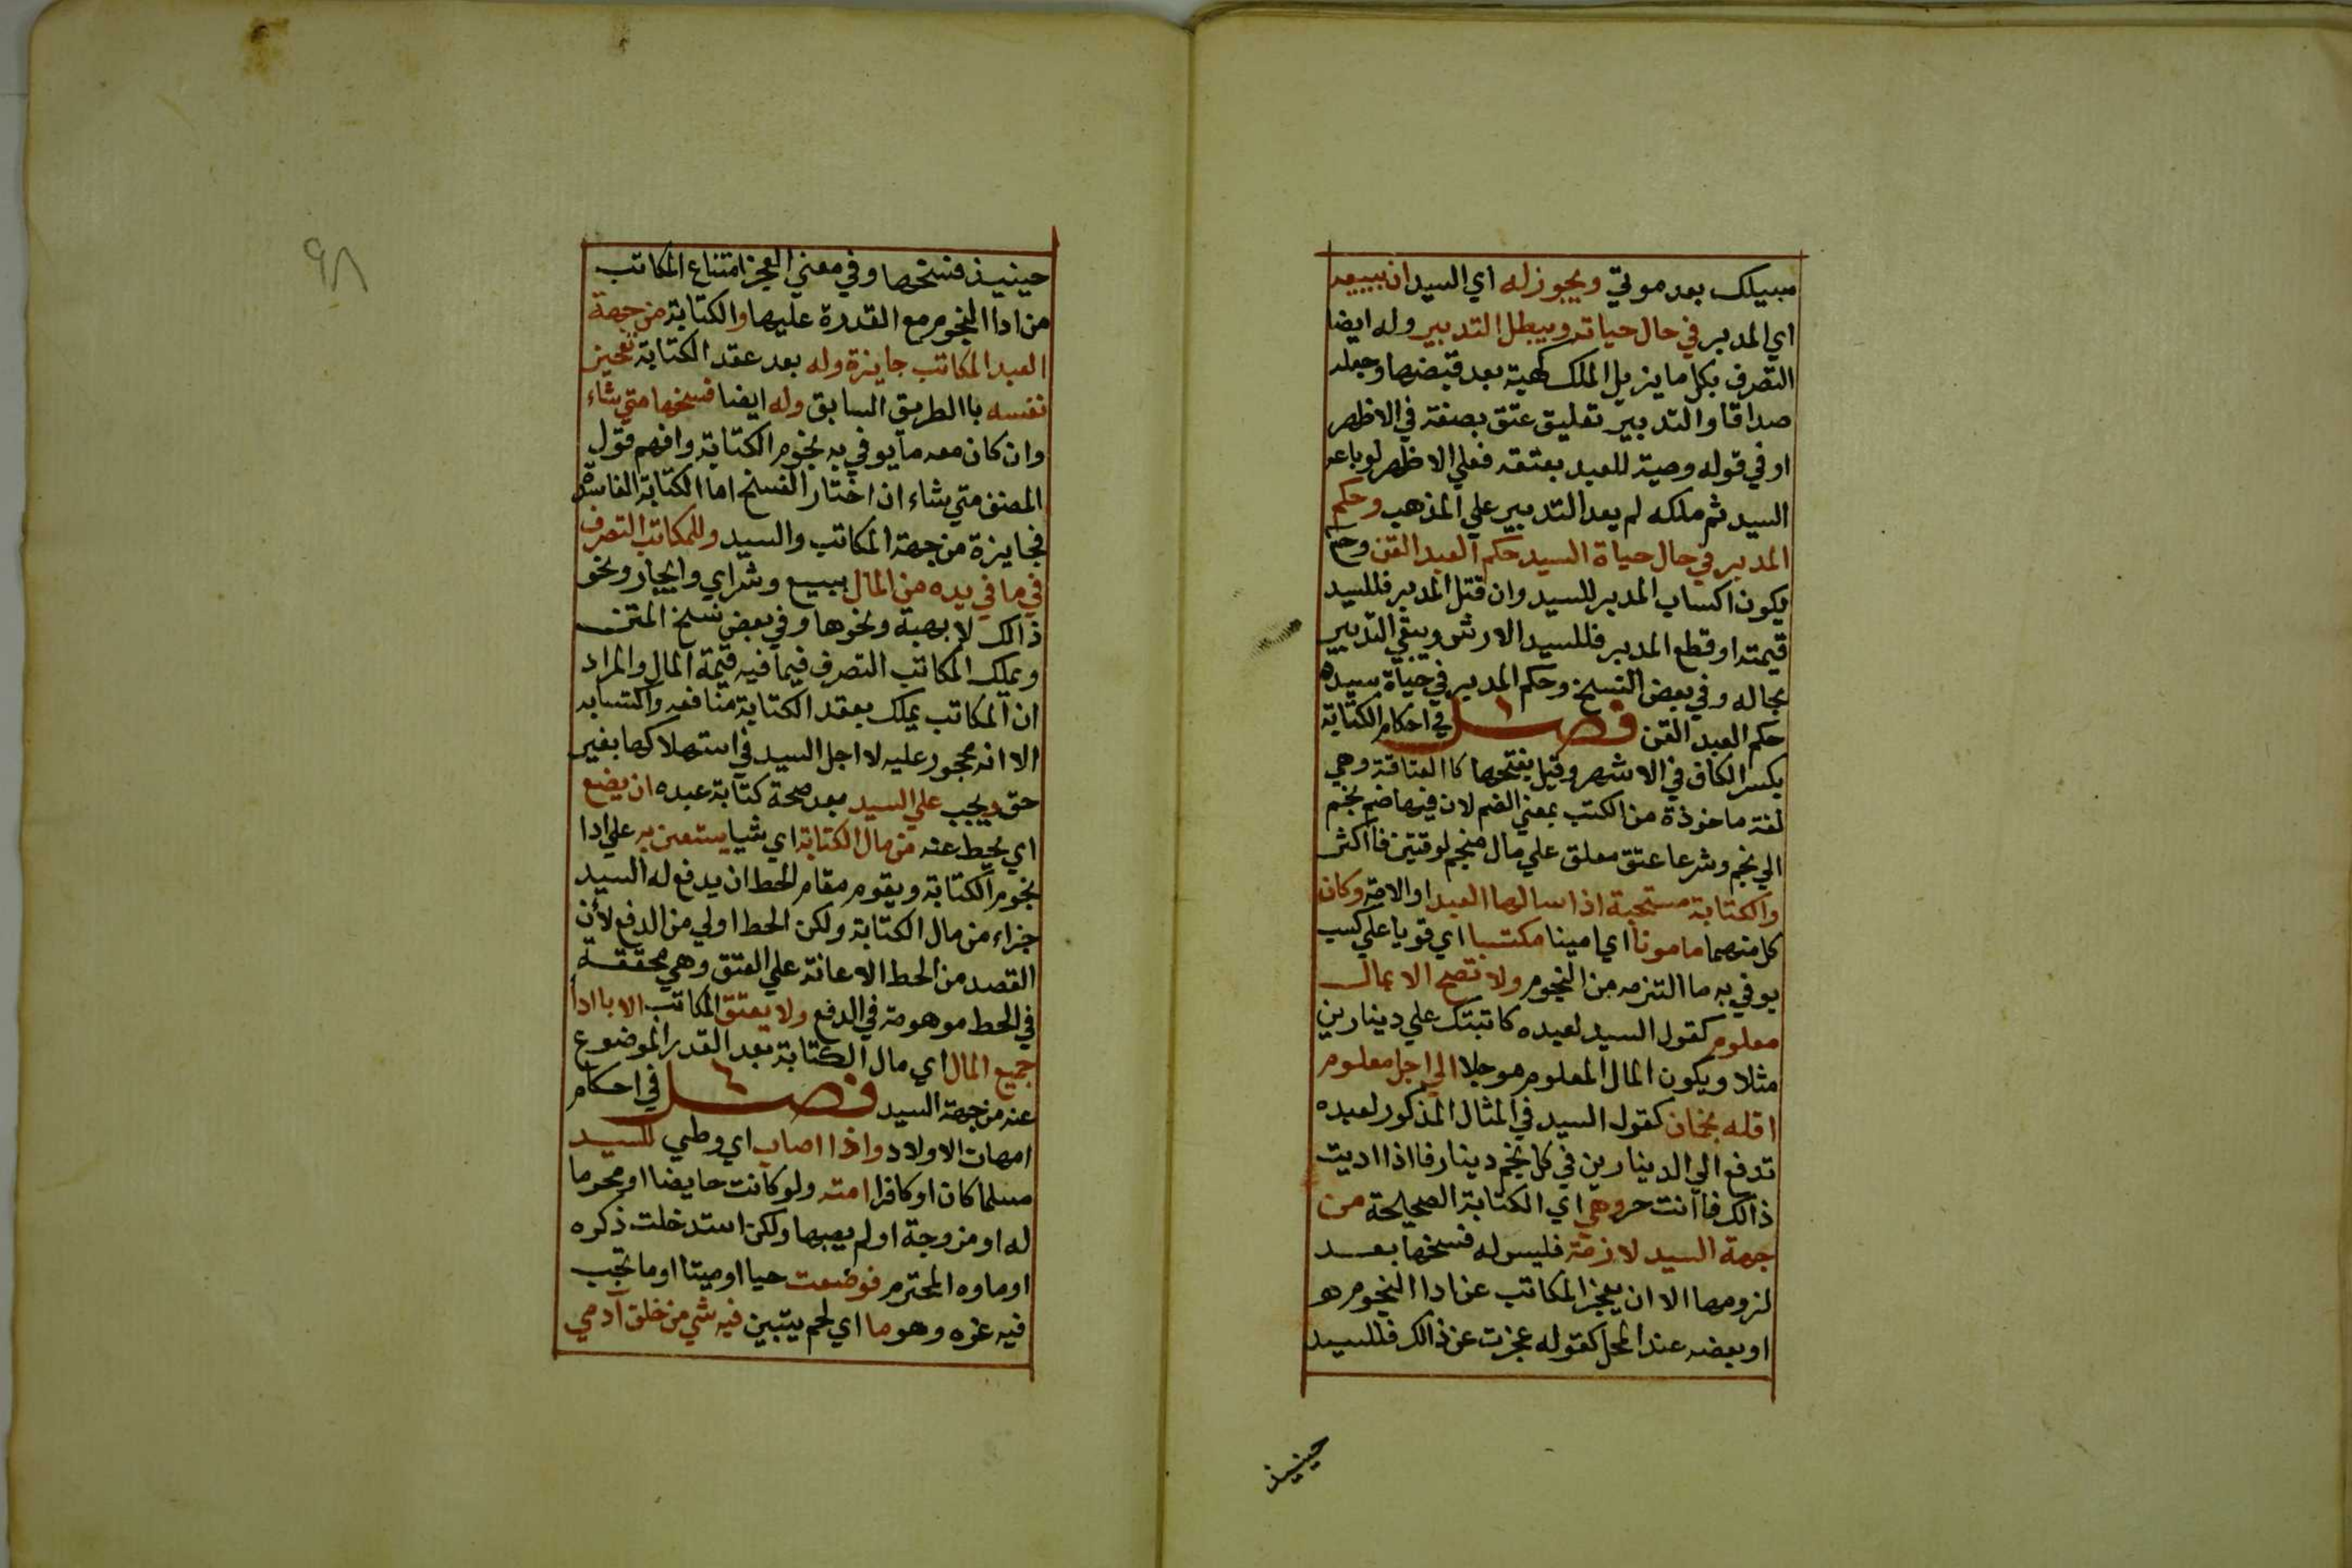 سبيلك بعد موتي ويجوز له اي السيد ان يبيعه
اي المدبر في حال حياته ويبطل التدبير وله ايضا
التصرف بكل ما يزيل الملك كهبة بعد قبضها وجعله
صداقا والتدبير تعليق عتق بصفة في الاظهر
او في قوله وصية للعبد بعتقه فعلي الاظهر لو باعه
السيد ثم ملكه لم يعد التدبير علي المذهب وحكم
المدبر في حال حياة السيد حكم العبد القن وح
يكون اكساب المدبر للسيد وان قتل المدبر فللسيد
قيمته او قطع المدبر فللسيد الارش ويبقي التدبير
بحاله وفي بعض النسخ وحكم المدبر في حياة سيده
حكم العبد القن فصل في احكام الكتابة
بكسر الكاف في الاشهر وقيل بفتحها كا العتاقة وهي
لغة ماخوذة من الكتب بمعني الضم لان فيها ضم نجم
الي نجم وشرعا عتق معلق علي مال منجم لوقتين فاكثر
والكتابة مستحبة اذا سالها العبد او الامة وكان
كل منهما مامونا اي امينا مكتسبا اي قويا علي كسب
يوفي به ما التزمه من النجوم ولا تصح الا بمال
معلوم كقول السيد لعبده كاتبتك علي دينارين
مثلا ويكون المال المعلوم موجلا الي اجل معلوم
اقله نجمان كقول السيد في المثال المذكور لعبده
تدفع الي الدينارين في كل نجم دينار فااذا اديت
ذالك فاانت حر وهي اي الكتابة الصحيحة من
جهة السيد لازمة فليس له فسخها بعد
لزومها الا ان يعجز المكاتب عن ادا النجوم هو
او بعضه عند المحل كقوله عجزت عن ذالك فللسيد
حينيذ
٩٨
حينيذ فسخها وفي معني العجز امتناع المكاتب
من ادا النجوم مع القدرة عليها والكتابة من جهة
العبد المكاتب جايزة وله بعد عقد الكتابة تعجيز
نفسه باالطريق السابق وله ايضا فسخها متي شاء
وان كان معه ما يوفي به نجوم الكتابة وافهم قول
المصنف متي شاء ان اختار الفسخ اما الكتابة الفاسدة
فجايزة من جهة المكاتب والسيد وللمكاتب التصرف
في ما في يده من المال ببيع وشراي وايجار ونحو
ذالك لا بهبة ونحوها وفي بعض نسخ المتن
ويملك المكاتب التصرف فيما فيه قيمة المال والمراد
ان المكاتب يملك بعقد الكتابة منافعه واكتسابه
الا انه محجور عليه لا اجل السيد في استهلاكها بغير
حق ويجب علي السيد بعد صحة كتابة عبده ان يضع
اي يحط عنه من مال الكتابة اي شيا يستعين به علي ادا
نجوم الكتابة ويقوم مقام الحط ان يدفع له السيد
جزاء من مال الكتابة ولكن الحط اولي من الدفع لأن
القصد من الحط الاعانة علي العتق وهي محققة
في الحط موهومة في الدفع ولا يعتق المكاتب الا باادا
جميع المال اي مال الكتابة بعد القدر الموضوع
عنه من جهة السيد فصل في احكام
امهات الاولاد واذا اصاب اي وطي السيد
مسلما كان او كافرا امته ولو كانت حايضا او محرما
له او مزوجة او لم يصبها ولكن استدخلت ذكره
او ماوه المحترم فوضعت حيا او ميتا او ما تجب
فيه غره وهو ما اي لحم يتبين فيه شي من خلق آدمي